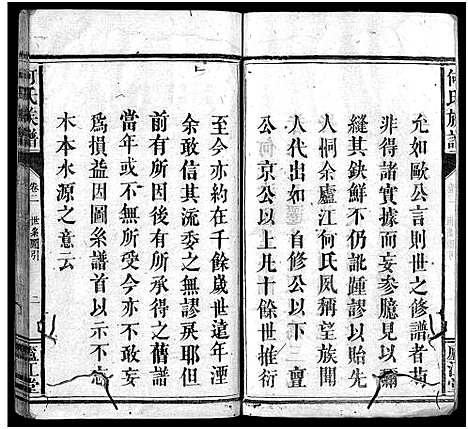 何氏族譜
廬江堂
允如歐公言則世之修譜者苟
非得諸實據而妄參臆見以彌
縫其鈌鮮不仍訛踵謬以貽先
人恫余廬江何氏夙稱望族閥
人代出如
自修公以下三亶
公何京公以上凡十餘世推衍
至今亦約在千餘歲世遠年湮
余敢信其流委之無謬戾耶但
前有所因後有所承得之舊譜
當年或不無所受今亦不敢妄
爲損益因圖系譜首以示不忘
木本水源之意云
何氏族譜
卷二
世系圖引
二
廬江堂